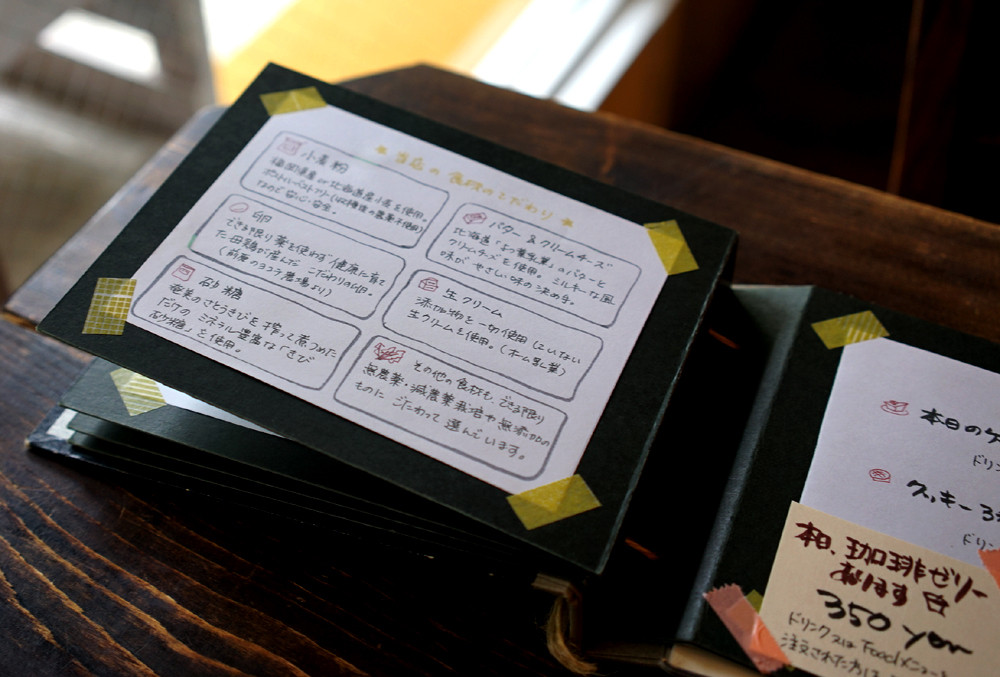 当店の食材のこだわり
小麦粉
福岡県産or北海道産小麦を使用。
ポストハーベストフリー(収穫後の農薬不使用)
なので安心・安全。
卵
できる限り薬を使わず健康に育て
た母鶏が産んだこだわりの卵。
農場より)
砂糖
奄美のさとうきびを搾って煮つめた
だけのミネラル豊富な「きび
砂糖」を使用。
バター&クリームチーズ
北海道「よつ葉乳業」のバターと
クリームチーズを使用。ミルキーな風
味がやさしい味の決め手。
生クリーム
添加物を一切使用していない
生クリームを使用。(ホーム乳業)
その他の食材も、できる限り
無農薬・減農薬栽培や無添加の
ものにこだわって選んでいます。
本日の
ドリン
クッキー3
ドリン
本日、珈琲ゼリー
あります
350 yen
ドリンク又はFoodメニューを
注文された方は